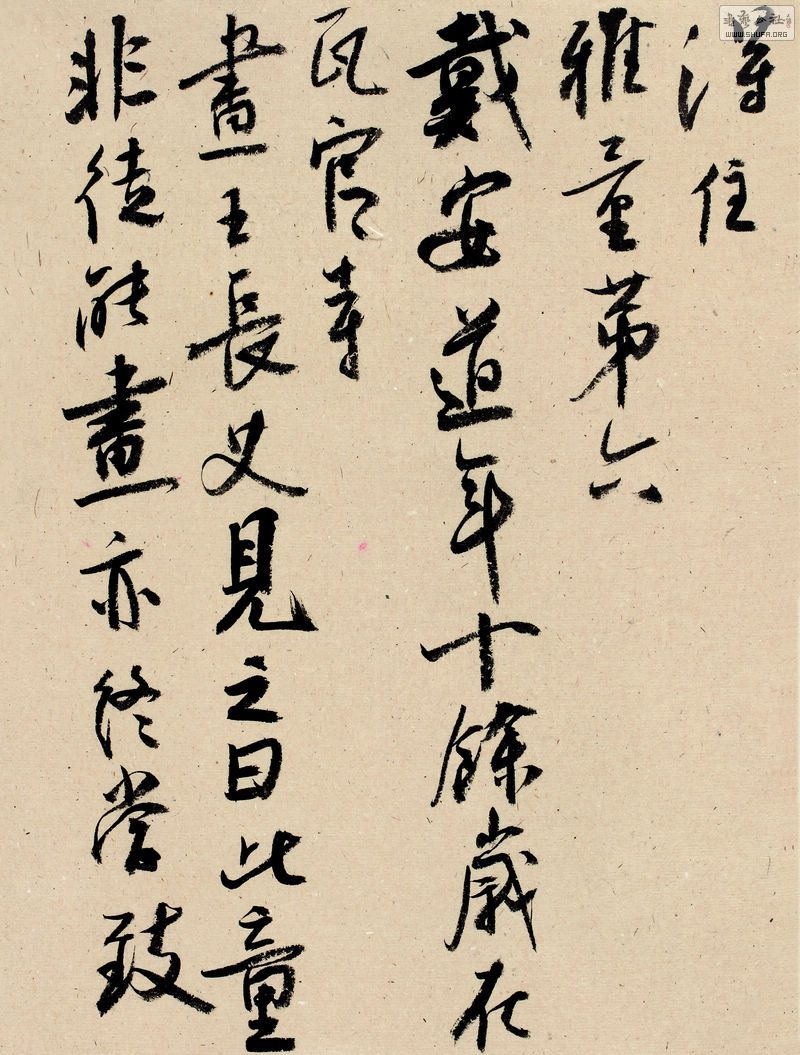 得住
雅量第六
戴安道年十餘歲在
瓦官寺
畫王長史見之曰此童
非徒能畫亦終當致
WWW.SHUFA.ORG